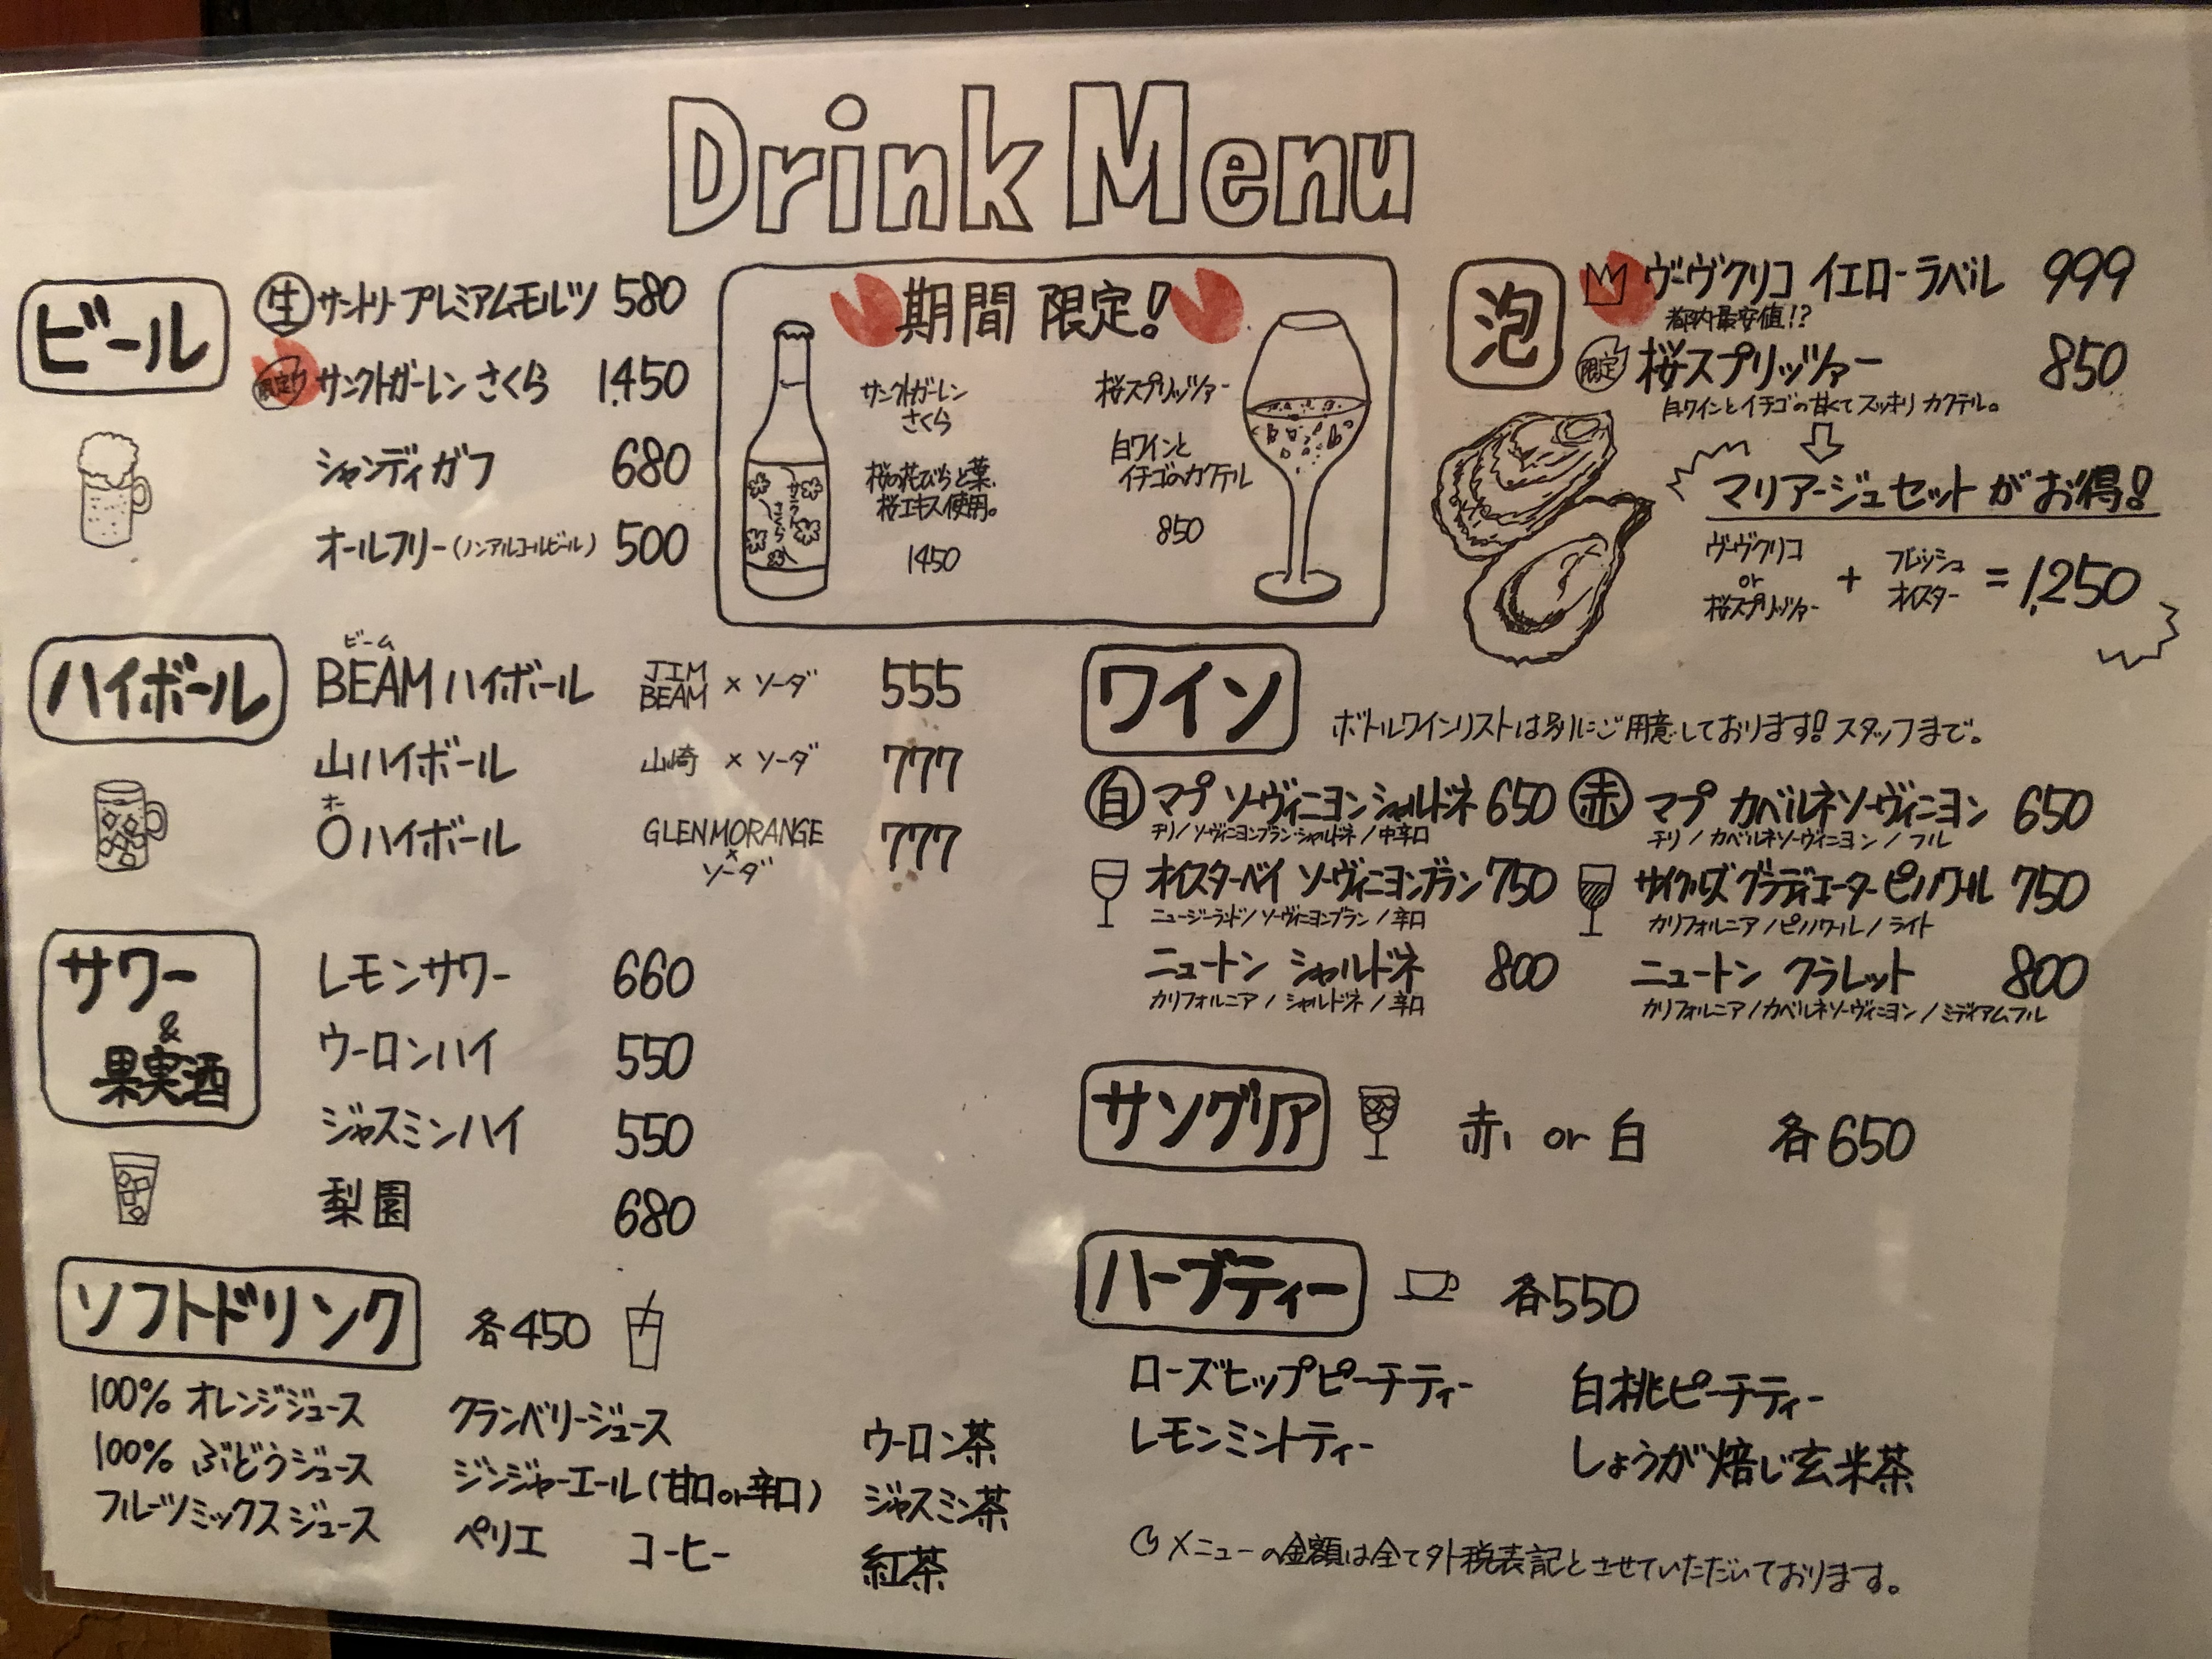 Drink Menu
ビール
生 サントリー プレミアムモルツ 580
限定 サンクトガーレン さくら 1,450
シャンディガフ 680
オールフリー(ノンアルコールビール) 500
期間限定!
サンクトガーレン
さくら
桜の花びらと葉、
桜エキス使用。
1450
桜スプリッツァー
白ワインと
イチゴのカクテル
850
泡
ヴーヴクリコ イエローラベル 999
都内最安値!?
限定 桜スプリッツァー 850
白ワインとイチゴの甘くてスッキリカクテル。
マリアージュセットがお得!
ヴーヴクリコ
or
桜スプリッツァー
+
フレッシュ
オイスター
=1,250
ハイボール
ビーム
BEAMハイボール JIM BEAM × ソーダ 555
山ハイボール 山崎 × ソーダ 777
オー
Oハイボール GLENMORANGE × ソーダ 777
サワー
&
果実酒
レモンサワー 660
ウーロンハイ 550
ジャスミンハイ 550
梨園 680
ソフトドリンク 各450
100% オレンジジュース
100% ぶどうジュース
フルーツミックスジュース
クランベリージュース
ジンジャーエール(甘口or辛口)
ペリエ コーヒー
ウーロン茶
ジャスミン茶
紅茶
ワイン
ボトルワインリストは別にご用意しております!スタッフまで。
白 マプ ソーヴィニヨンシャルドネ 650
チリ/ソーヴィニヨンブラン・シャルドネ/中辛口
オイスターベイ ソーヴィニヨンブラン 750
ニュージーランド/ソーヴィニヨンブラン/辛口
ニュートン シャルドネ 800
カリフォルニア/シャルドネ/辛口
赤 マプ カベルネソーヴィニヨン 650
チリ/カベルネソーヴィニヨン/フル
サイクルズグラディエーター ピノノワール 750
カリフォルニア/ピノノワール/ライト
ニュートン クラレット 800
カリフォルニア/カベルネソーヴィニヨン/ミディアムフル
サングリア 赤 or 白 各650
ハーブティー 各550
ローズヒップピーチティー
レモンミントティー
白桃ピーチティー
しょうが焙じ玄米茶
メニューの金額は全て外税表記とさせていただいております。